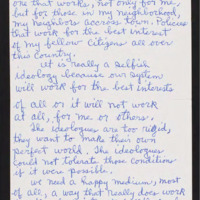 one that works, not only for me,
but for those in my neighborhood,
my neighbors accross town. Policies
that work for the best interest
of my fellow citizens all over
this country.
It is really a selfish
ideology because our system
will work for the best interests
of all or it will not work
at all, for me or others.
The ideologues are too rigid,
they want to make their own
perfect world. The ideologues
could not tolerate those conditions
if it were possible.
We need a happy medium, most
of all, a way that really does work